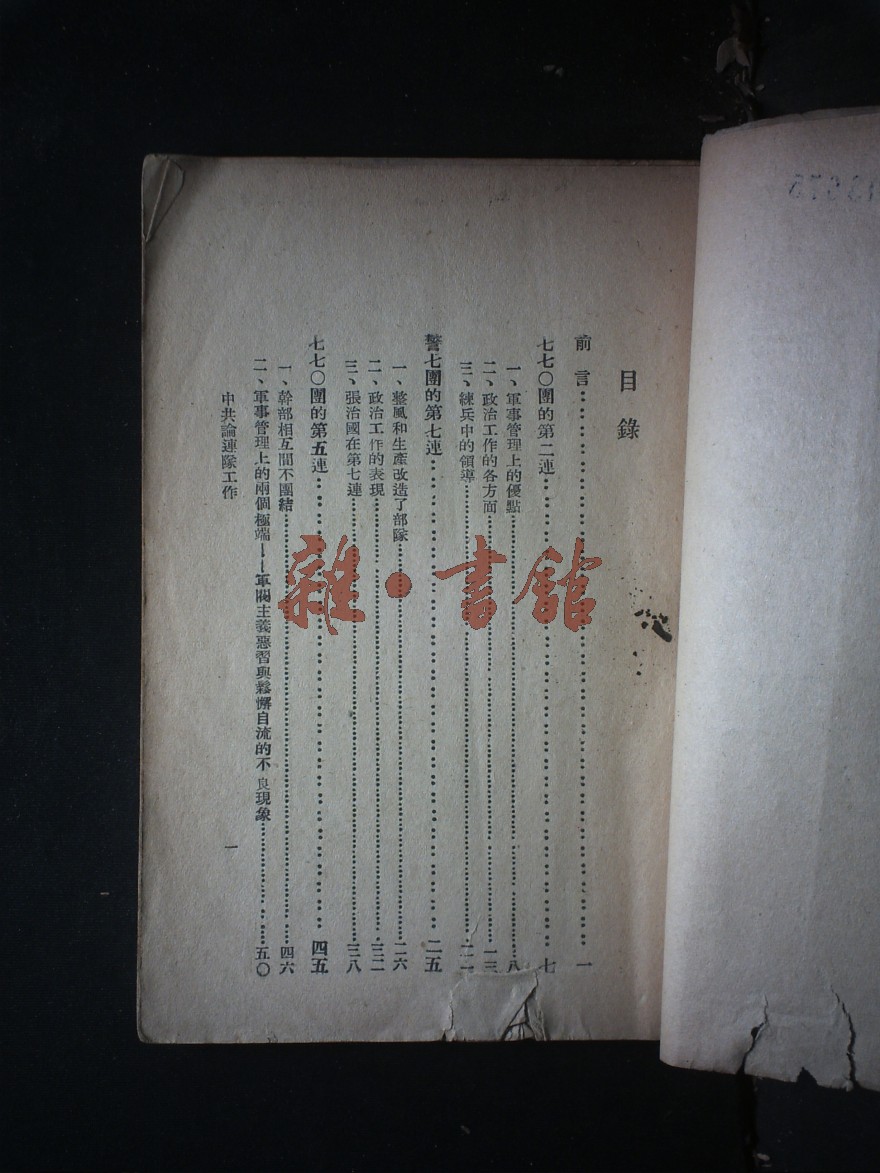 目錄
前言……………………一
七七〇團的第二連……………………七
一、軍事管理上的優點……………………八
二、政治工作的各方面……………………一三
三、練兵中的領導……………………二一
警七團的第七連……………………二五
一、整風和生產改造了部隊……………………二六
二、政治工作的表現……………………三二
三、張治國在第七連……………………三八
七七〇團的第五連……………………四五
一、幹部相互間不團結……………………四六
二、軍事管理上的兩個極端——軍閥主義惡習與鬆懈自流的不良現象……………………五〇
中共論連隊工作
一
雜·書館